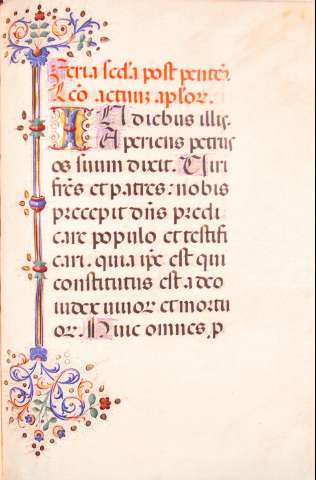 Feria scd̄a post pentec̄.
Lc̄o actuū ap̄lor.
IN diebus illis.
Aperiens petrus
os suum dixit. Viri
frēs et patres: nobis
precepit dn̄s predi
care populo et testifi
cari. quia ip̄e est qui
constitutus est a deo
iudex uiuor et mortu
or. Huic omnes, p